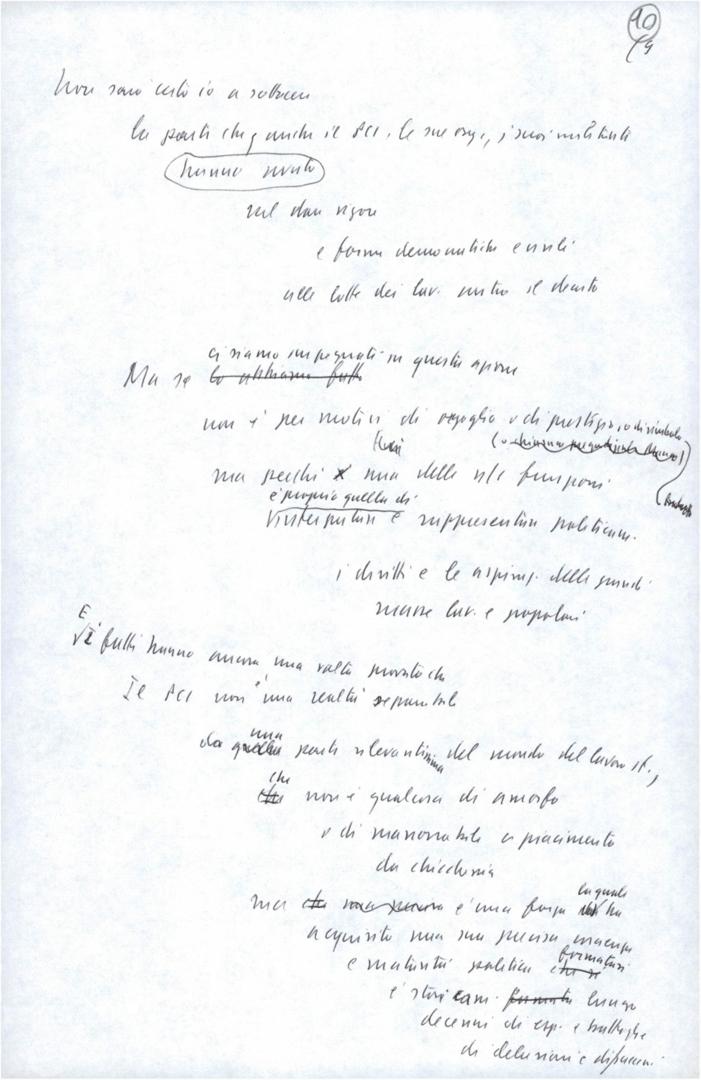 10
Non sarò certo io a sottacere
la parte che anche il PCI, le sue org., i suoi militanti
hanno avuto
nel dare vigore
e forma democratiche e civili
alle lotte dei lav. contro il decreto
ci siamo impegnati in questa azione
Ma se lo abbiamo fatto
non è per motivi di orgoglio o di prestigio, o di simbolo
ma perché una delle ns/e funzioni
è proprio quella di
interpretare e rappresentare politicam.
i diritti e le aspiraz. delle grandi
masse lav. e popolari
E
i fatti hanno ancora una volta provato che
Il PCI non è una realtà separabile
una
da quella parte rilevantissima del mondo del lavoro it.,
che
che non è qualcosa di amorfo
o di manovrabile a piacimento
da chicchessia
la quale
ma che una massa è una forza che ha
acquisito una sua precisa coscienza
formatasi
e maturità politica che si
è storicam. formata lungo
decenni di esp. e battaglie
di delusioni e